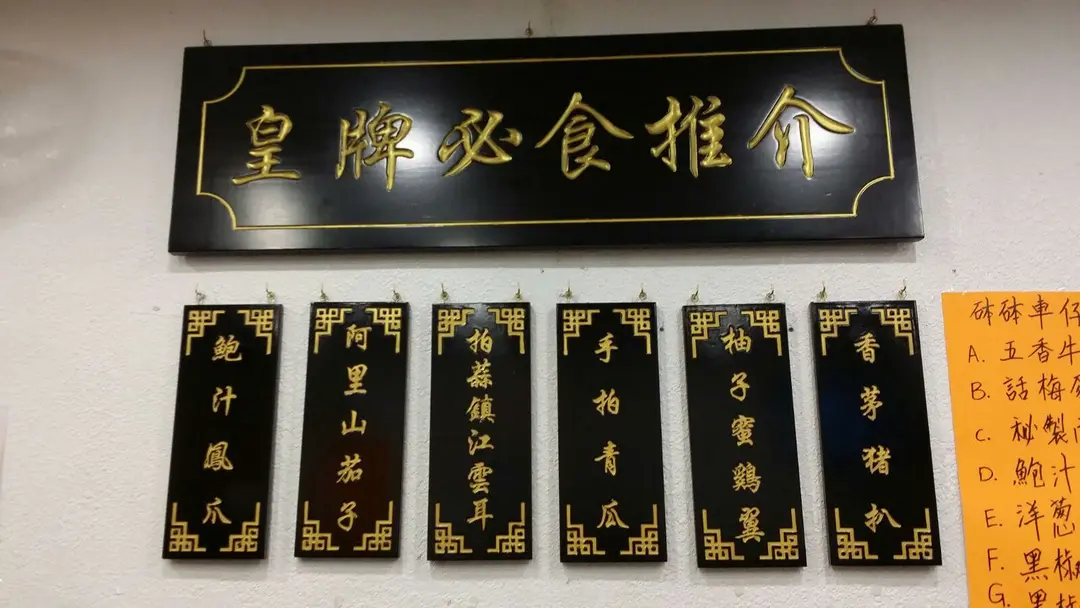 皇牌必食推介
鮑汁鳳爪
阿里山茄子
拍蒜鎮江雲耳
手拍青瓜
柚子蜜鷄翼
香茅猪扒
砵砵車仔
A. 五香牛
B. 話梅
C. 秘製
D. 鮑汁
E. 洋葱
F. 黑椒
G. 黑椒